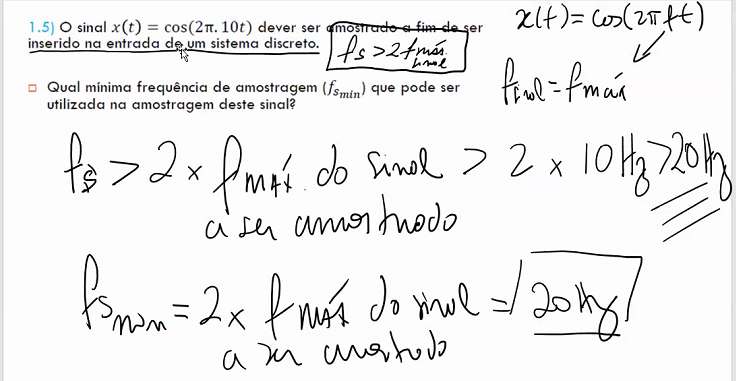 1.5) O sinal x(t) = cos(2π. 10t) dever ser amostrado a fim de ser
inserido na entrada de um sistema discreto.
fs > 2 fmáx
sinal
x(t) = cos(2π f t)
fsinal = fmáx
Qual mínima frequência de amostragem (fsmin) que pode ser
utilizada na amostragem deste sinal?
fs > 2 × fMÁX. do sinal > 2 × 10Hz > 20Hz
a ser amostrado
fsmin = 2 × fMÁX do sinal = 20Hz
a ser amostrado